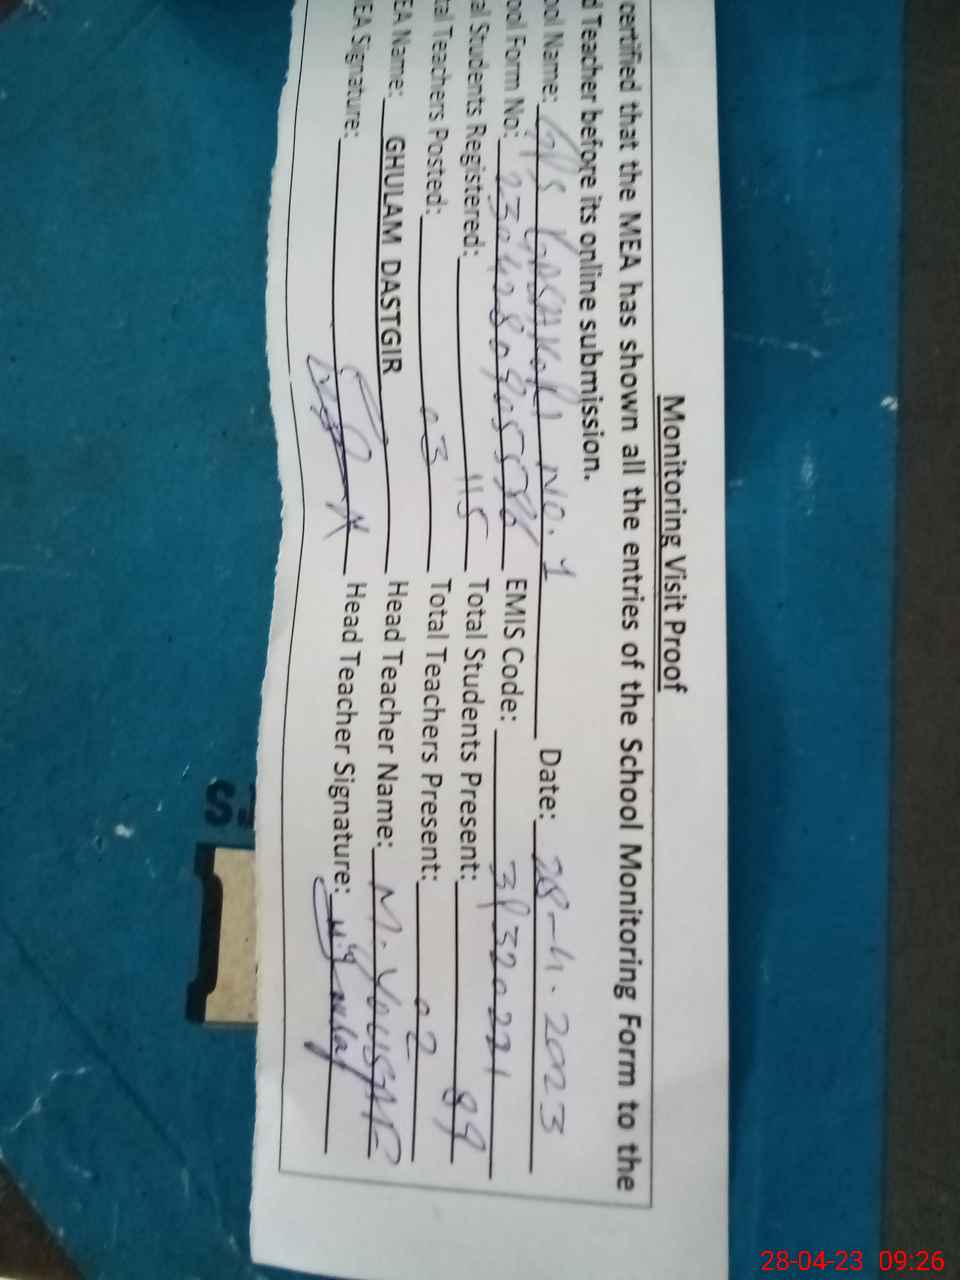 Monitoring Visit Proof
certified that the MEA has shown all the entries of the School Monitoring Form to the
d Teacher before its online submission.
ool Name: GPS No. 1 Date: 28-4-2023
ool Form No: EMIS Code:
al Students Registered: 115 Total Students Present: 89
tal Teachers Posted: 03 Total Teachers Present: 02
EA Name: GHULAM DASTGIR Head Teacher Name: M. YOUSAF
EA Signature: Head Teacher Signature:
28-04-23 09:26